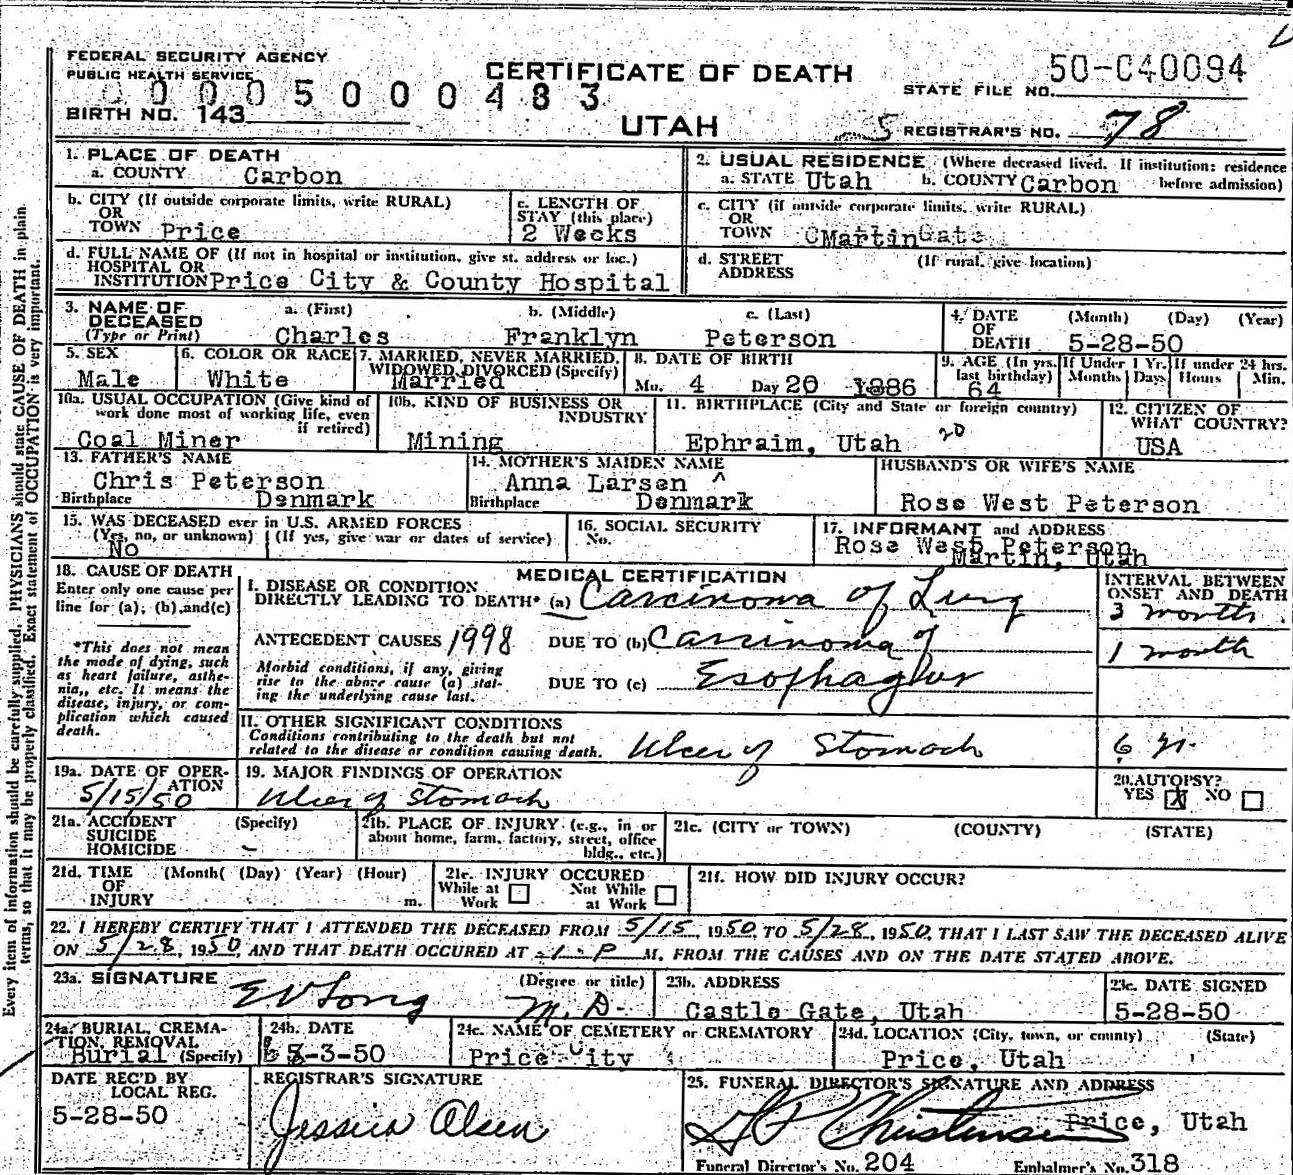 FEDERAL SECURITY AGENCY
PUBLIC HEALTH SERVICE
0005000483
BIRTH NO. 143
CERTIFICATE OF DEATH
UTAH
50-C40094
STATE FILE NO.
5 REGISTRAR'S NO. 78
Every item of information should be carefully supplied. PHYSICIANS should state CAUSE OF DEATH in plain
terms, so that it may be properly classified. Exact statement of OCCUPATION is very important.
1. PLACE OF DEATH
a. COUNTY Carbon
2. USUAL RESIDENCE (Where deceased lived. If institution: residence
a. STATE Utah b. COUNTY Carbon before admission)
b. CITY (If outside corporate limits, write RURAL)
OR
TOWN Price
c. LENGTH OF
STAY (this place)
2 Weeks
c. CITY (if outside corporate limits, write RURAL)
OR
TOWN Martin
d. FULL NAME OF (If not in hospital or institution, give st. address or loc.)
HOSPITAL OR
INSTITUTION Price City & County Hospital
d. STREET (If rural, give location)
ADDRESS
3. NAME OF DECEASED (Type or Print)
a. (First) b. (Middle) c. (Last)
Charles Franklyn Peterson
4. DATE OF DEATH (Month) (Day) (Year)
5-28-50
5. SEX
Male
6. COLOR OR RACE
White
7. MARRIED, NEVER MARRIED,
WIDOWED, DIVORCED (Specify)
Married
8. DATE OF BIRTH
Mo. 4 Day 20 1886
9. AGE (In yrs. last birthday)
64
If Under 1 Yr. Months Days
If under 24 hrs. Hours Min.
10a. USUAL OCCUPATION (Give kind of
work done most of working life, even
if retired)
Coal Miner
10b. KIND OF BUSINESS OR
INDUSTRY
Mining
11. BIRTHPLACE (City and State or foreign country)
Ephraim, Utah 20
12. CITIZEN OF
WHAT COUNTRY?
USA
13. FATHER'S NAME
Chris Peterson
Birthplace Denmark
14. MOTHER'S MAIDEN NAME
Anna Larsen
Birthplace Denmark
HUSBAND'S OR WIFE'S NAME
Rose West Peterson
15. WAS DECEASED ever in U.S. ARMED FORCES
(Yes, no, or unknown) (If yes, give war or dates of service)
No
16. SOCIAL SECURITY
No.
17. INFORMANT and ADDRESS
Rose West Peterson
Martin, Utah
18. CAUSE OF DEATH
Enter only one cause per
line for (a), (b), and (c)
*This does not mean
the mode of dying, such
as heart failure, asthe-
nia,, etc. It means the
disease, injury, or com-
plication which caused
death.
MEDICAL CERTIFICATION
I. DISEASE OR CONDITION
DIRECTLY LEADING TO DEATH* (a) Carcinoma of Lung
INTERVAL BETWEEN
ONSET AND DEATH
3 months
ANTECEDENT CAUSES 1998 DUE TO (b) Carcinoma of
1 month
Morbid conditions, if any, giving
rise to the above cause (a) stat-
ing the underlying cause last.
DUE TO (c) Esophagus
II. OTHER SIGNIFICANT CONDITIONS
Conditions contributing to the death but not
related to the disease or condition causing death. Ulcer of Stomach
6 yr.
19a. DATE OF OPER-
ATION
5/15/50
19. MAJOR FINDINGS OF OPERATION
Ulcer of Stomach
20. AUTOPSY?
YES X NO
21a. ACCIDENT (Specify)
SUICIDE
HOMICIDE -
21b. PLACE OF INJURY (e.g., in or
about home, farm, factory, street, office
bldg., etc.)
21c. (CITY or TOWN) (COUNTY) (STATE)
21d. TIME (Month( (Day) (Year) (Hour)
OF
INJURY m.
21e. INJURY OCCURED
While at Work Not While at Work
21f. HOW DID INJURY OCCUR?
22. I HEREBY CERTIFY THAT I ATTENDED THE DECEASED FROM 5/15, 1950, TO 5/28, 1950, THAT I LAST SAW THE DECEASED ALIVE
ON 5/28, 1950, AND THAT DEATH OCCURED AT 1 - P M. FROM THE CAUSES AND ON THE DATE STATED ABOVE.
23a. SIGNATURE (Degree or title)
E V Long M.D.
23b. ADDRESS
Castle Gate, Utah
23c. DATE SIGNED
5-28-50
24a. BURIAL, CREMA-
TION, REMOVAL
Burial (Specify)
24b. DATE
-3-50
24c. NAME OF CEMETERY or CREMATORY
Price City
24d. LOCATION (City, town, or county) (State)
Price, Utah
DATE REC'D BY
LOCAL REG.
5-28-50
REGISTRAR'S SIGNATURE
Jessica Olsen
25. FUNERAL DIRECTOR'S SIGNATURE AND ADDRESS
Christensen Price, Utah
Funeral Director's No. 204 Embalmer's No. 318